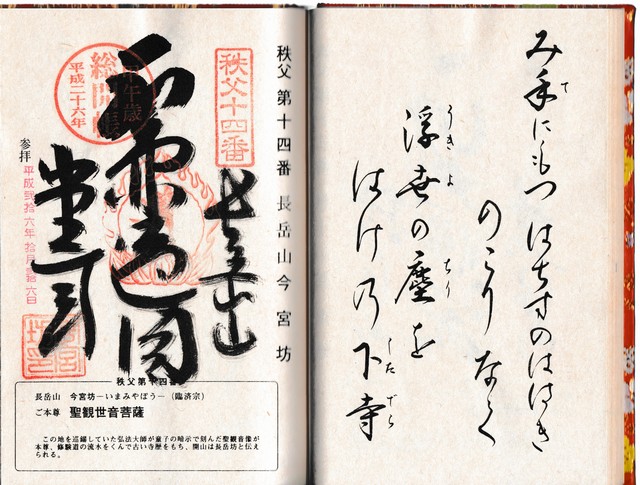 み手にもつ はちすのははき
て
のこりなく
浮世の塵を
うきよ ちり
はけの下寺
したでら
秩父 第十四番 長岳山 今宮坊
秩父十四番
長岳山
甲午歳
総開帳
平成二十六年
参拝 平成弐拾六年 拾月
秩父第十四番
長岳山 今宮坊−いまみやぼう−(臨済宗)
ご本尊 聖観世音菩薩
この地を巡錫していた弘法大師が童子の暗示で刻んだ聖観音像が
本尊、修験道の流水をくんで古い寺歴をもち、開山は長岳坊と伝え
られる。